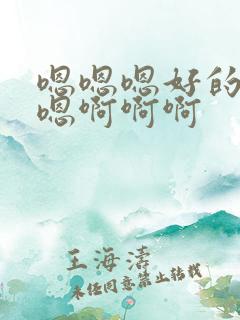 嗯嗯嗯好的
嗯啊啊啊
王海涛
未经同意禁止转载